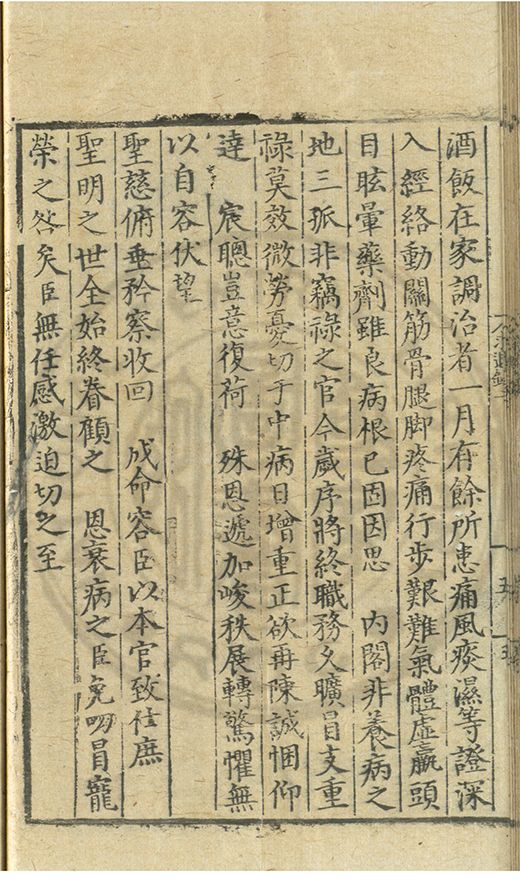 酒飯在家調治者一月有餘所患痛風痰濕等證深
入經絡動關筋骨腿脚疼痛行步艱難氣體虛羸頭
目眩暈藥劑雖良病根已固因思　內閣非養病之
地三孤非竊祿之官今歲序將終職務久曠員支重
祿莫效微勞憂切于中病日增重正欲再陳誠悃仰
達　宸聰豈意復荷　殊恩遞加峻秩展轉驚懼無
以自容伏望
聖慈俯垂矜察收回　成命容臣以本官致仕庶
聖明之世全始終眷顧之　恩衰病之臣免叨冒寵
榮之咎矣臣無任感激迫切之至